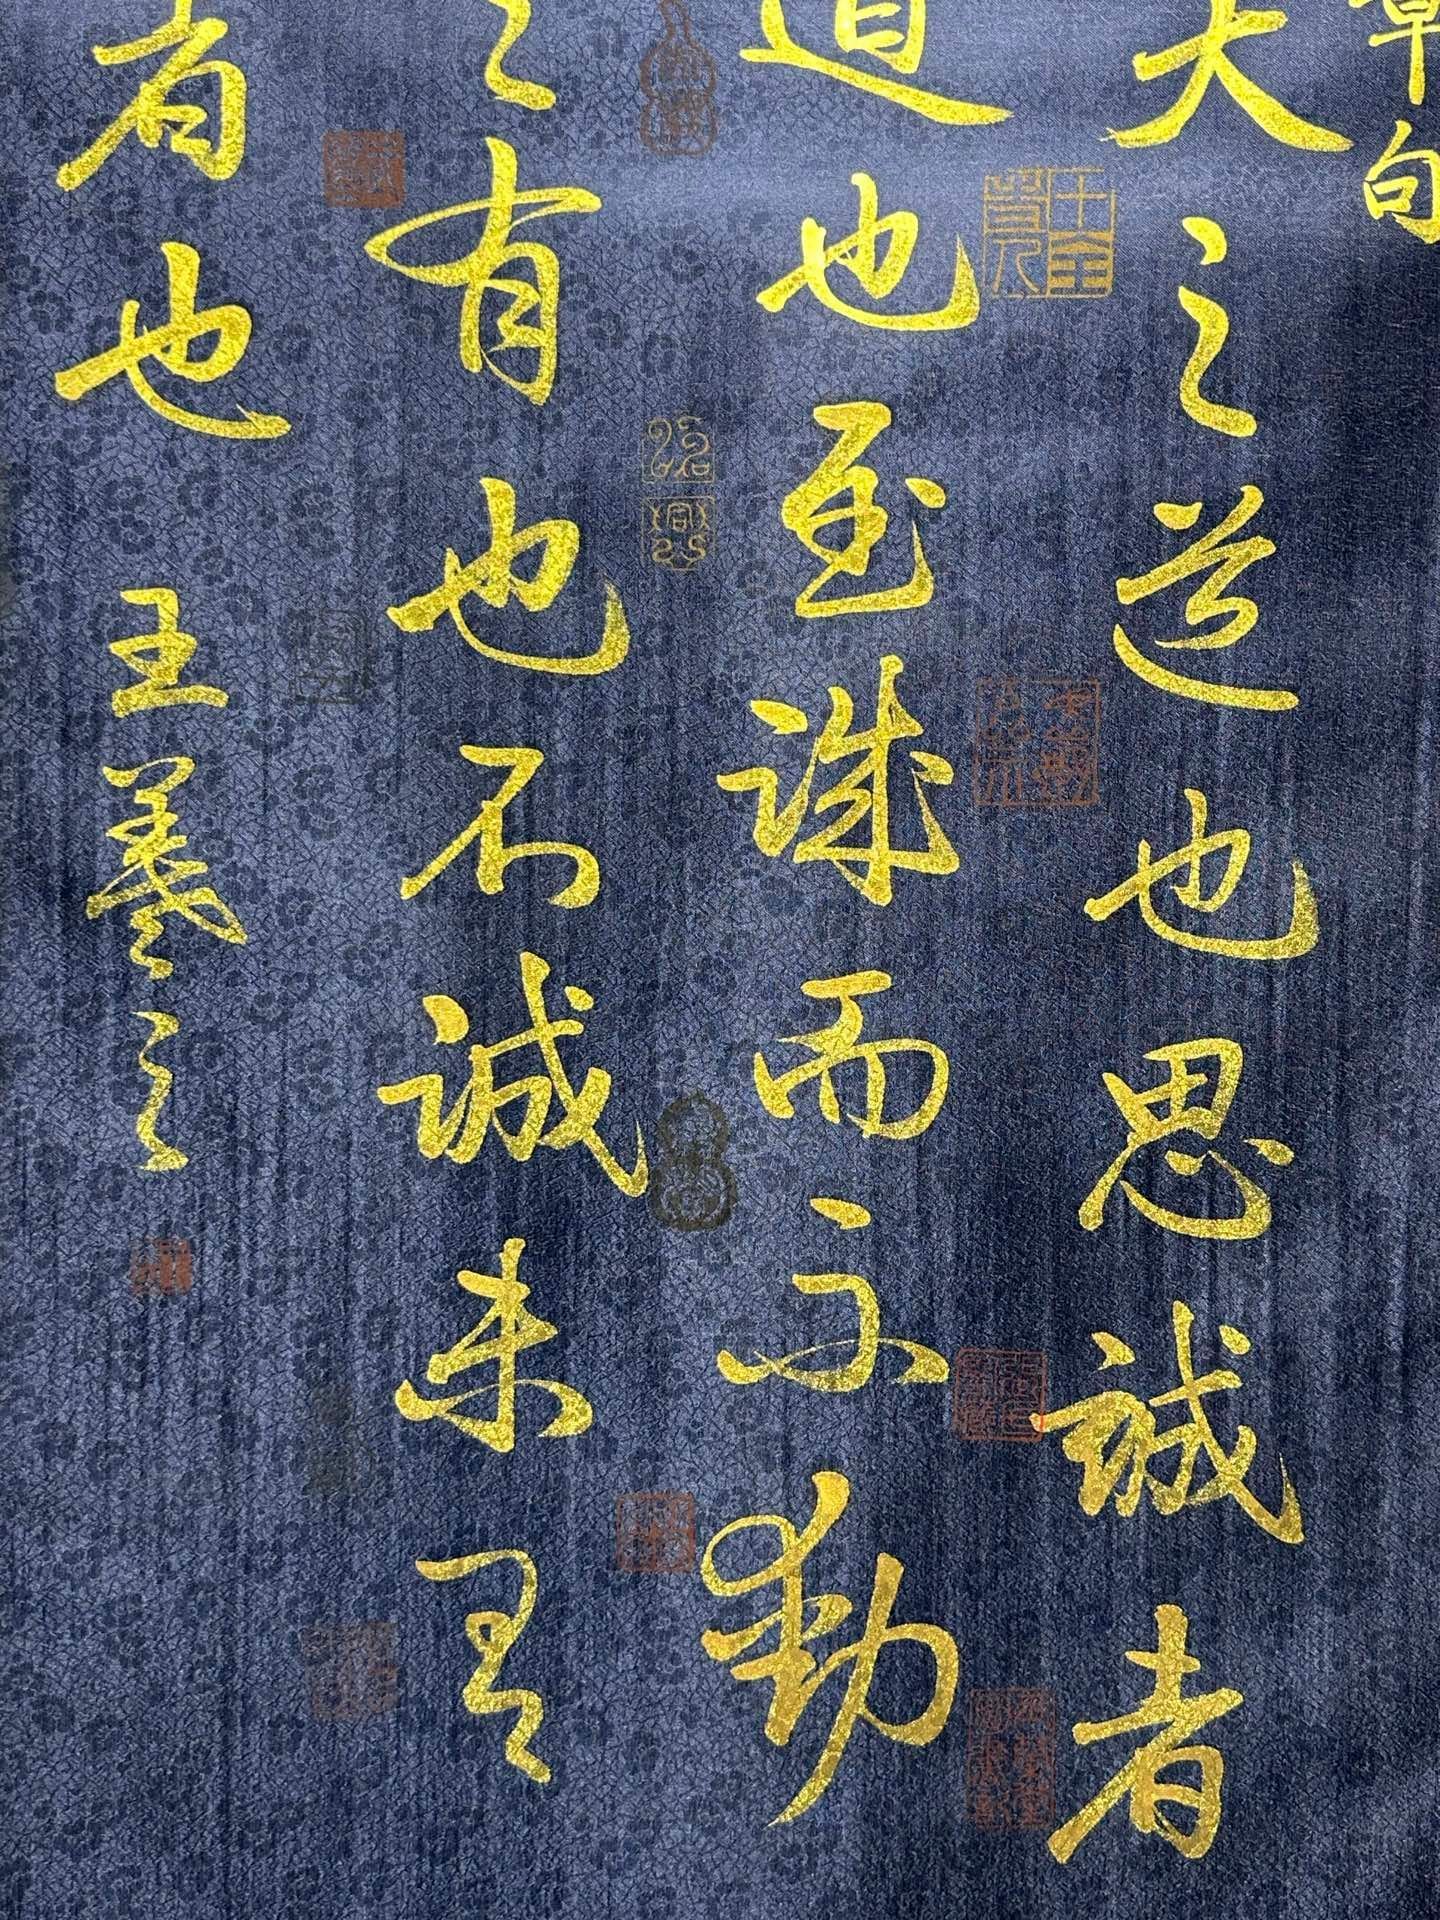 章句
天之道也思誠者
道也至誠而不動
之有也不誠未有
者也
王羲之